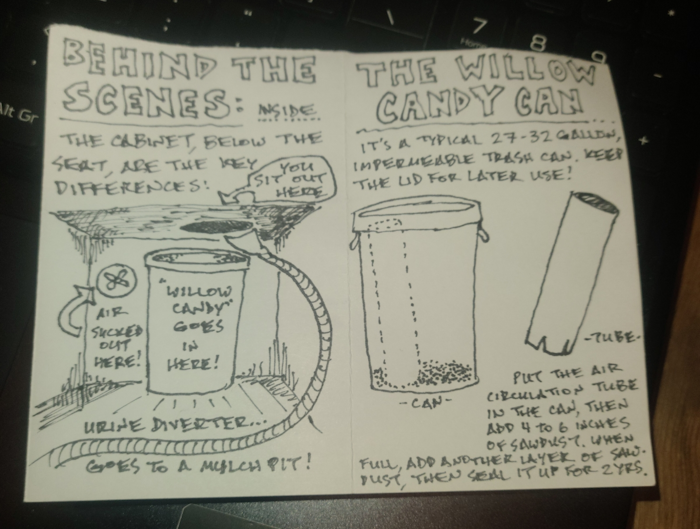 BEHIND THE
SCENES: INSIDE
THE CABINET, BELOW THE
SEAT, ARE THE KEY
DIFFERENCES:
YOU
SIT OUT
HERE
AIR
SUCKED
OUT
HERE!
"WILLOW
CANDY"
GOES
IN
HERE!
URINE DIVERTER...
GOES TO A MULCH PIT!
THE WILLOW
CANDY CAN
IT'S A TYPICAL 27-32 GALLON,
IMPERMEABLE TRASH CAN. KEEP
THE LID FOR LATER USE!
-CAN-
-TUBE-
PUT THE AIR
CIRCULATION TUBE
IN THE CAN, THEN
ADD 4 TO 6 INCHES
OF SAWDUST. WHEN
FULL, ADD ANOTHER LAYER OF SAW-
DUST, THEN SEAL IT UP FOR 2 YRS.
7
Home
8
9
Alt Gr